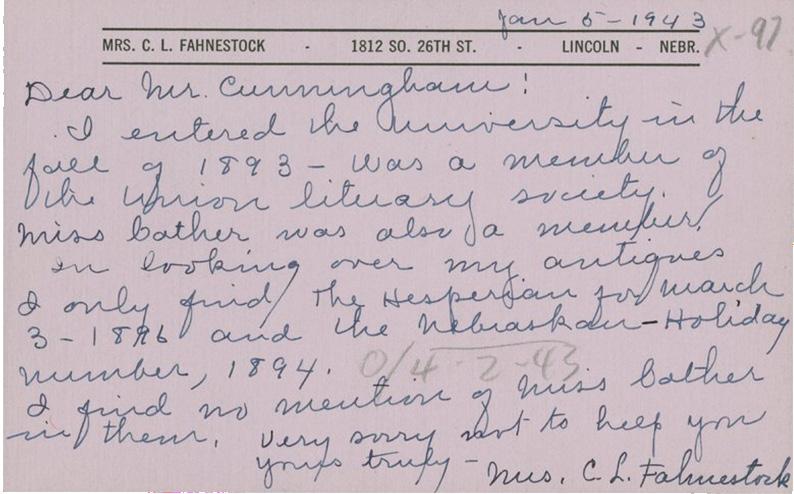 Jan 5 - 1943
X-97
MRS. C. L. FAHNESTOCK - 1812 SO. 26TH ST. - LINCOLN - NEBR.
Dear Mr. Cunningham!
I entered the University in the
fall of 1893 - was a member of
the Union literary society.
Miss Cather was also a member.
In looking over my antiques
I only find the Hesperian for March
3 - 1896 and the Nebraskan - Holiday
number, 1894.
4-2-43
I find no mention of Miss Cather
in them. Very sorry not to help you
yours truly -
Mrs. C. L. Fahnestock